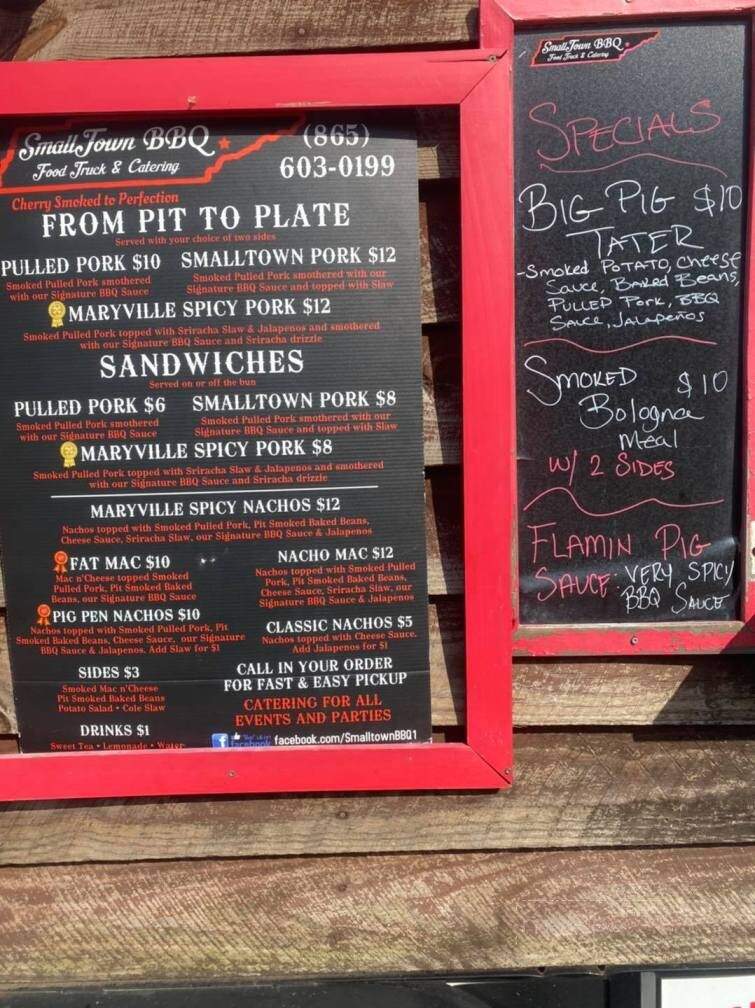 Small Town BBQ
Food Truck & Catering
(865)
603-0199
Cherry Smoked to Perfection
FROM PIT TO PLATE
Served with your choice of two sides
PULLED PORK $10
Smoked Pulled Pork smothered
with our Signature BBQ Sauce
SMALLTOWN PORK $12
Smoked Pulled Pork smothered with our
Signature BBQ Sauce and topped with Slaw
MARYVILLE SPICY PORK $12
Smoked Pulled Pork topped with Sriracha Slaw & Jalapenos and smothered
with our Signature BBQ Sauce and Sriracha drizzle
SANDWICHES
Served on or off the bun
PULLED PORK $6
Smoked Pulled Pork smothered
with our Signature BBQ Sauce
SMALLTOWN PORK $8
Smoked Pulled Pork smothered with our
Signature BBQ Sauce and topped with Slaw
MARYVILLE SPICY PORK $8
Smoked Pulled Pork topped with Sriracha Slaw & Jalapenos and smothered
with our Signature BBQ Sauce and Sriracha drizzle
MARYVILLE SPICY NACHOS $12
Nachos topped with Smoked Pulled Pork, Pit Smoked Baked Beans,
Cheese Sauce, Sriracha Slaw, our Signature BBQ Sauce & Jalapenos
FAT MAC $10
Mac n'Cheese topped Smoked
Pulled Pork, Pit Smoked Baked
Beans, our Signature BBQ Sauce
NACHO MAC $12
Nachos topped with Smoked Pulled
Pork, Pit Smoked Baked Beans,
Cheese Sauce, Sriracha Slaw, our
Signature BBQ Sauce & Jalapenos
PIG PEN NACHOS $10
Nachos topped with Smoked Pulled Pork, Pit
Smoked Baked Beans, Cheese Sauce, our Signature
BBQ Sauce & Jalapenos. Add Slaw for $1
CLASSIC NACHOS $5
Nachos topped with Cheese Sauce.
Add Jalapenos for $1
SIDES $3
Smoked Mac n'Cheese
Pit Smoked Baked Beans
Potato Salad • Cole Slaw
DRINKS $1
Sweet Tea • Lemonade • Water
CALL IN YOUR ORDER
FOR FAST & EASY PICKUP
CATERING FOR ALL
EVENTS AND PARTIES
facebook facebook.com/SmalltownBBQ1
Small Town BBQ
Food Truck & Catering
SPECIALS
BIG PIG $10
TATER
-Smoked POTATO, Cheese
Sauce, Baked Beans,
PULLED Pork, BBQ
Sauce, JALAPEÑOS
SMOKED $10
Bologna
Meal
W/ 2 SIDES
FLAMIN PIG
SAUCE: VERY SPICY
BBQ SAUCE